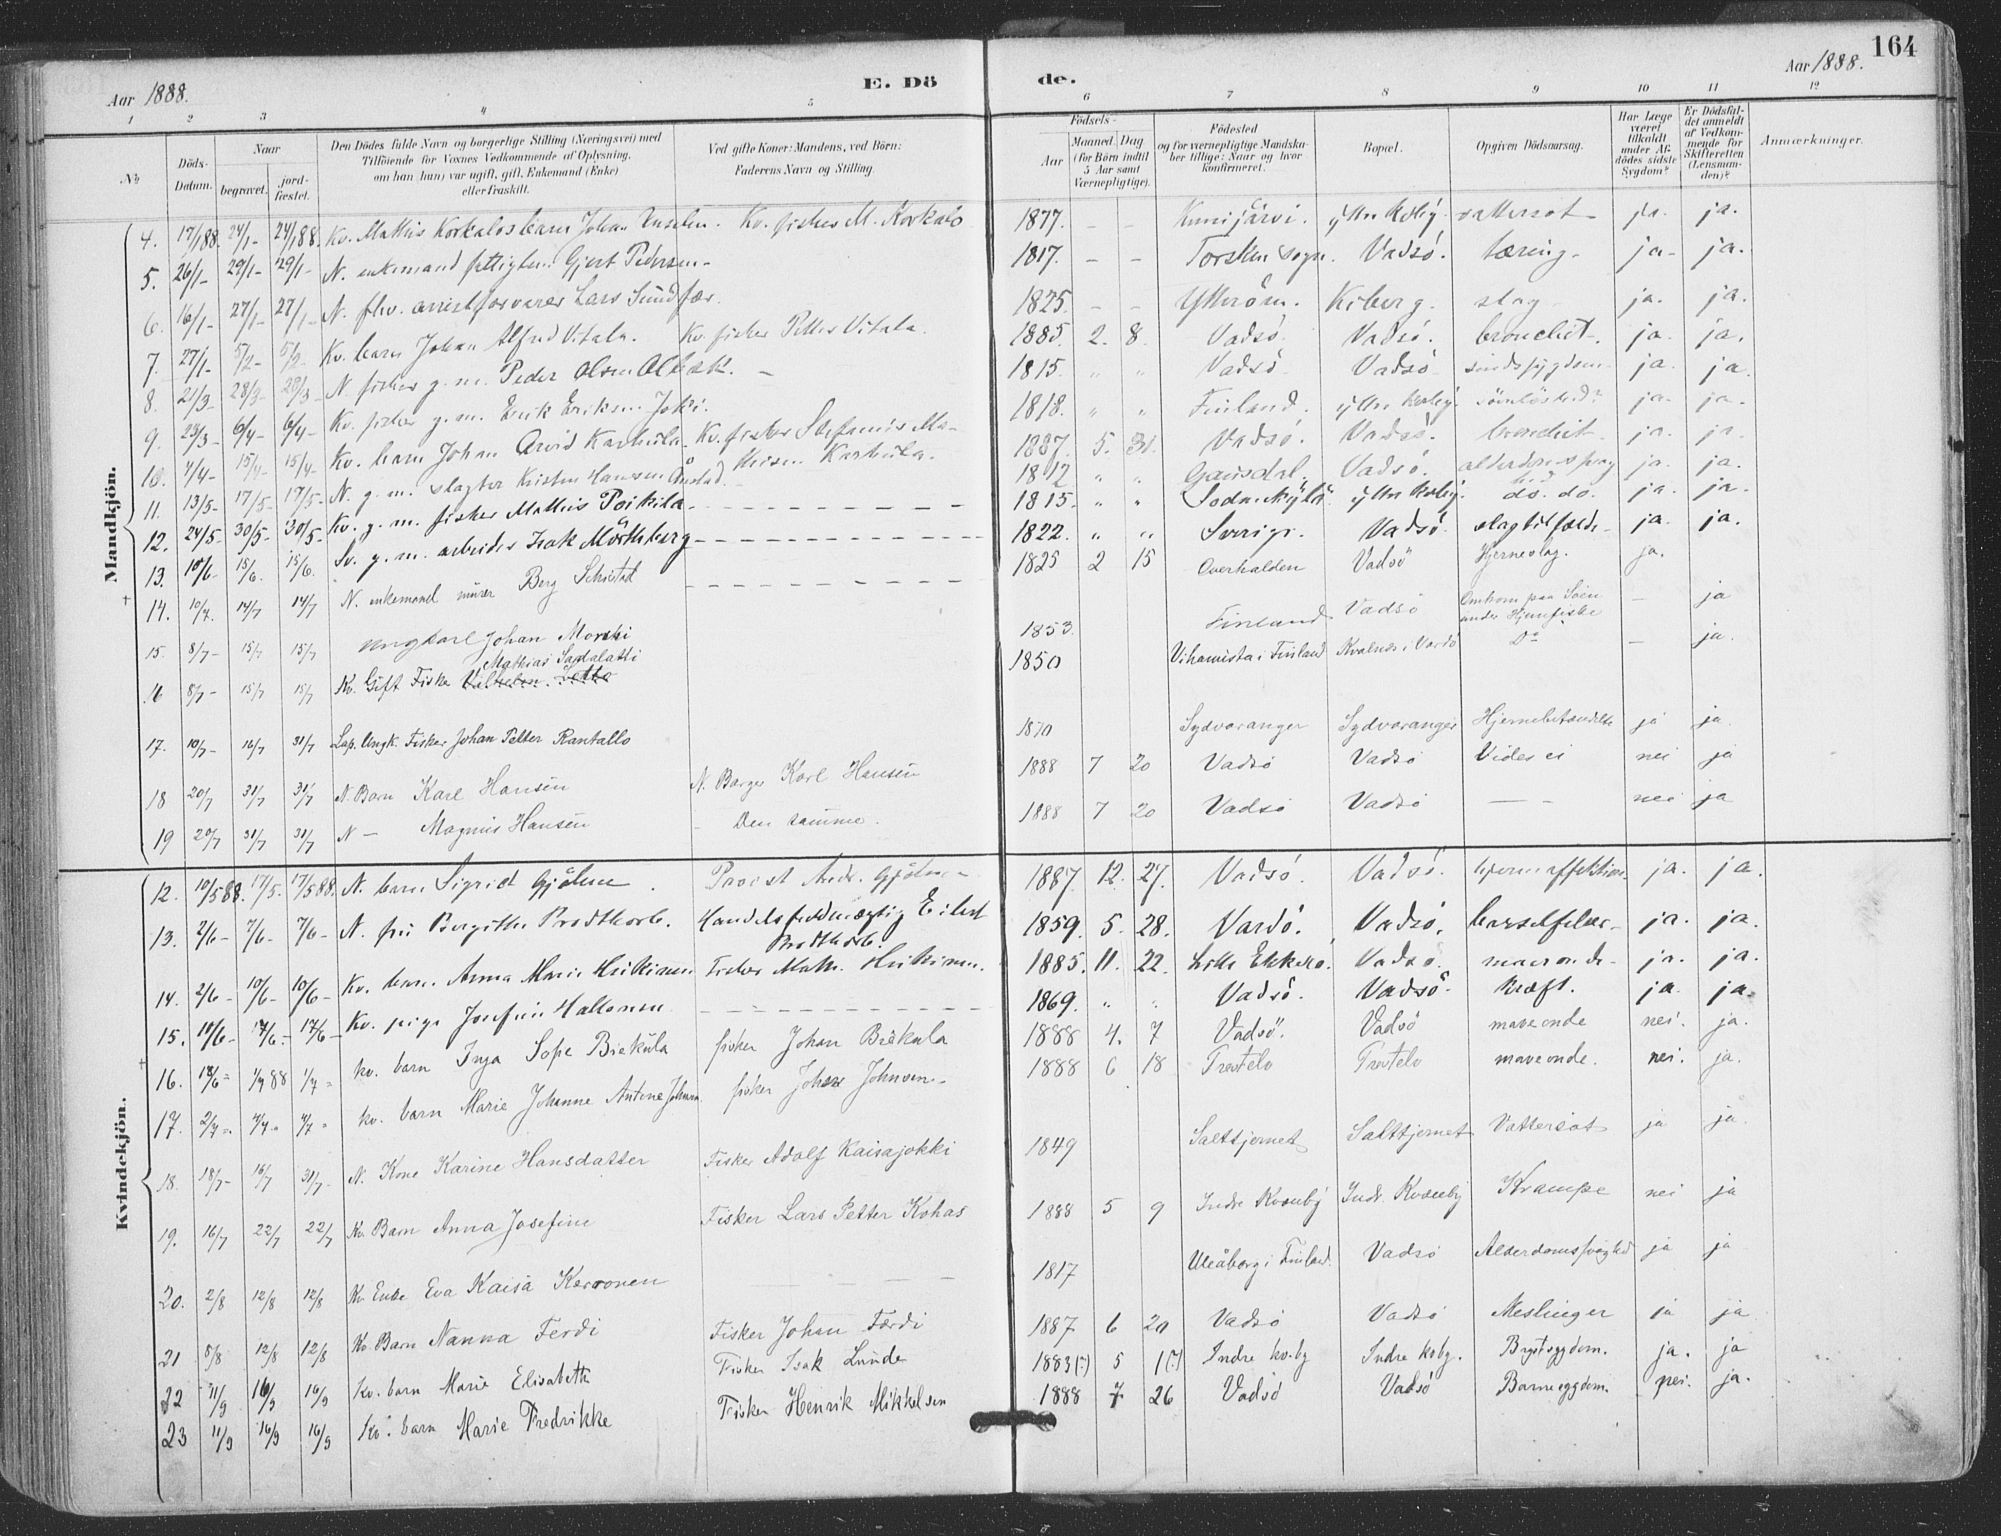 164
Aar 1888.
E. Dö
de.
Aar 1888.
1 2 3 4 5 6 7 8 9 10 11 12
No
Döds-Datum.
Naar
begravet.
jord-fæstet.
Den Dödes fulde Navn og borgerlige Stilling (Næringsvei) med
Tilföiende for Voxnes Vedkommende af Oplysning,
om han (hun) var ugift, gift, Enkemand (Enke)
eller fraskilt.
Ved gifte Koner: Mandens, ved Börn:
Faderens Navn og Stilling.
Födsels-
Aar
Maaned.
Dag
(for Börn indtil
5 Aar samt
Værnepligtige).
Födested
og for værnepligtige Mandska-
ber tillige: Naar og hvor
konfirmeret.
Bopæl.
Opgiven Dödsaarsag.
Har Læge
været
tilkaldt
under Af-
dödes sidste
Sygdom?
Er Dödsfal-
det anmeldt
af Vedkom-
mende for
Skifteretten
(Lensman-
den)?
Anmærkninger.
Mandkjön.
4. 17/1 88 24/1- 24/1 88. Kv. Mathis Korkalos barn Johan Kv. fisker M. Korkalo 1877. - - ytre kvby. vattersot ja. ja.
5. 26/1- 29/1- 29/1- N. enkemand fattiglem Gjert Pedersen- 1817. - - Torsken sogn. Vadsö. tæring- ja- ja.
6. 16/1- 27/1- 27/1- N. fhv. arrestforvarer Lars Sundfær. 1825. - - Kiberg. slag ja. ja.
7. 27/1- 5/2- 5/2 Kv. barn Johan Alfred Vitala. Kv. fisker Petter Vitala. 1885. 2. 8. Vadsö. Vadsö. bronchit. ja. ja.
8. 21/3- 28/3- 28/3- N. fisker g. m. Peder Olsen - 1815. " " Vadsö Vadsö ja. ja.
9. 23/3- 6/4- 6/4- Kv. fisker g. m. Erik Eriksen Joki. 1818. " " Finland. ytre kvby. ja. ja.
10. 7/4- 15/4- 15/4- Kv. barn Johan Arvid Karhula Kv. fisker Karhula. 1887. 5. Vadsö. Vadsö. bronchit ja. ja.
11. 13/5- 17/5- 17/5- N. g. m. slagter Kristen Hansen 1812 " " Gausdal. Vadsö. ja. ja.
12. 24/5- 30/5- 30/5- Kv. g. m. fisker Mathis Poikila - - - 1815. " " ytre kvby. do. do. ja. ja.
13. 15/6. 15/6. Sv. g. m. arbeider Isak - - - 1822. " " Sverige. Vadsö. ja. ja.
14. 10/7. 14/7 14/7 N. enkemand murer Berg - - - 1825 2 15 Overhalden Vadsö Hjerneslag. ja.
15. 8/7- 15/7 15/7 Ungkarl Johan Morski 1853. Finland Vadsö Omkom paa Söen
under Hjemfiske - ja
16 8/7- 15/7 15/7 Kv. Gift Fisker Mathias 1850 i Finland i Vardö Do - ja.
17. 10/7- 16/7 31/7 Lap. Ungk. Fisker Johan Petter Rantallo 1870 Sydvaranger Sydvaranger Hjernebetændelse ja ja.
18 20/7 31/7 31/7 N. Barn Karl Hansen N. Borger Karl Hansen 1888 7 20 Vadsö Vadsö Vides ei nei ja
19 20/7 31/7 31/7 N - Magnus Hansen - Den samme. 1888 7 20 Vadsö Vadsö - - nei ja
Kvindekjön.
12. 10/5 88. 17/5. 17/5 88. N. barn Sigrid Gjölme Provst Andr. Gjölme 1887. 12. 27. Vadsö. Vadsö. hjerneaffektion. ja. ja.
13. 2/6- 7/6- 7/6- N. fru Bergitte Brodtkorb. Handelsfuldmægtig Eilert
Brodtkorb. 1859. 5. 28. Vardö. Vadsö. barselfeber- ja. ja.
14. 2/6- 10/6- 10/6- Kv. barn Anna Marie Heikinen Fisker Math. Heikinen. 1885. 11. 22. Lille Ekkerö. Vadsö. maveonde- ja. ja.
15. 10/6- 17/6- 17/6- Kv. pige Josefine Haltonen - - - 1869. " " Vadsö. Vadsö. kræft. ja. ja.
16. 18/6- 1/7 88 1/7- kv. barn Inga Sofie Biekula fisker Johan Biekula 1888 4. 7 Vadsö. Vadsö maveonde nei. ja.
17. 2/7-. kv. barn Marie Johanne Antone Johnsen fisker Johan Johnsen- 1888 6 18 maveonde. nei. ja.
18. 18/7- 16/7 31/7- N. Kone Karine Hansdatter Fisker Adolf Kaisajokki 1849 Salttjernet Salttjernet Vattersot ja ja.
19. 16/7 22/7 22/7 Kv. Barn Anna Josefine Fisker Lars Petter Kohas 1888 5 9 Indre Kvænby Indr. Kvænby Krampe nei ja
20. 2/8 12/8 12/8 Kv. Enke Eva Kaisa Kerronen - - - 1817 Uleåborg i Finland. Vadsö Alderdomssvaghed ja ja
21 5/8 12/8 12/8 Kv. Barn Nanna Ferdi Fisker Johan Færdi 1887 6 20 Vadsö Vadsö Meslinger ja ja
22 11/9 16/9 16/9 kv. barn Marie Elisabeth Fisker Isak Lunde 1883(?) 5 1(?) Indre kv.by Indre kvby. Brystsygdom. ja. ja
23 11/9 16/9 16/9 Kv. barn Marie Fredrikke Fisker Henrik Mikkelsen 1888 7 26 Vadsö Vadsö Barnesygdom. nei. ja.